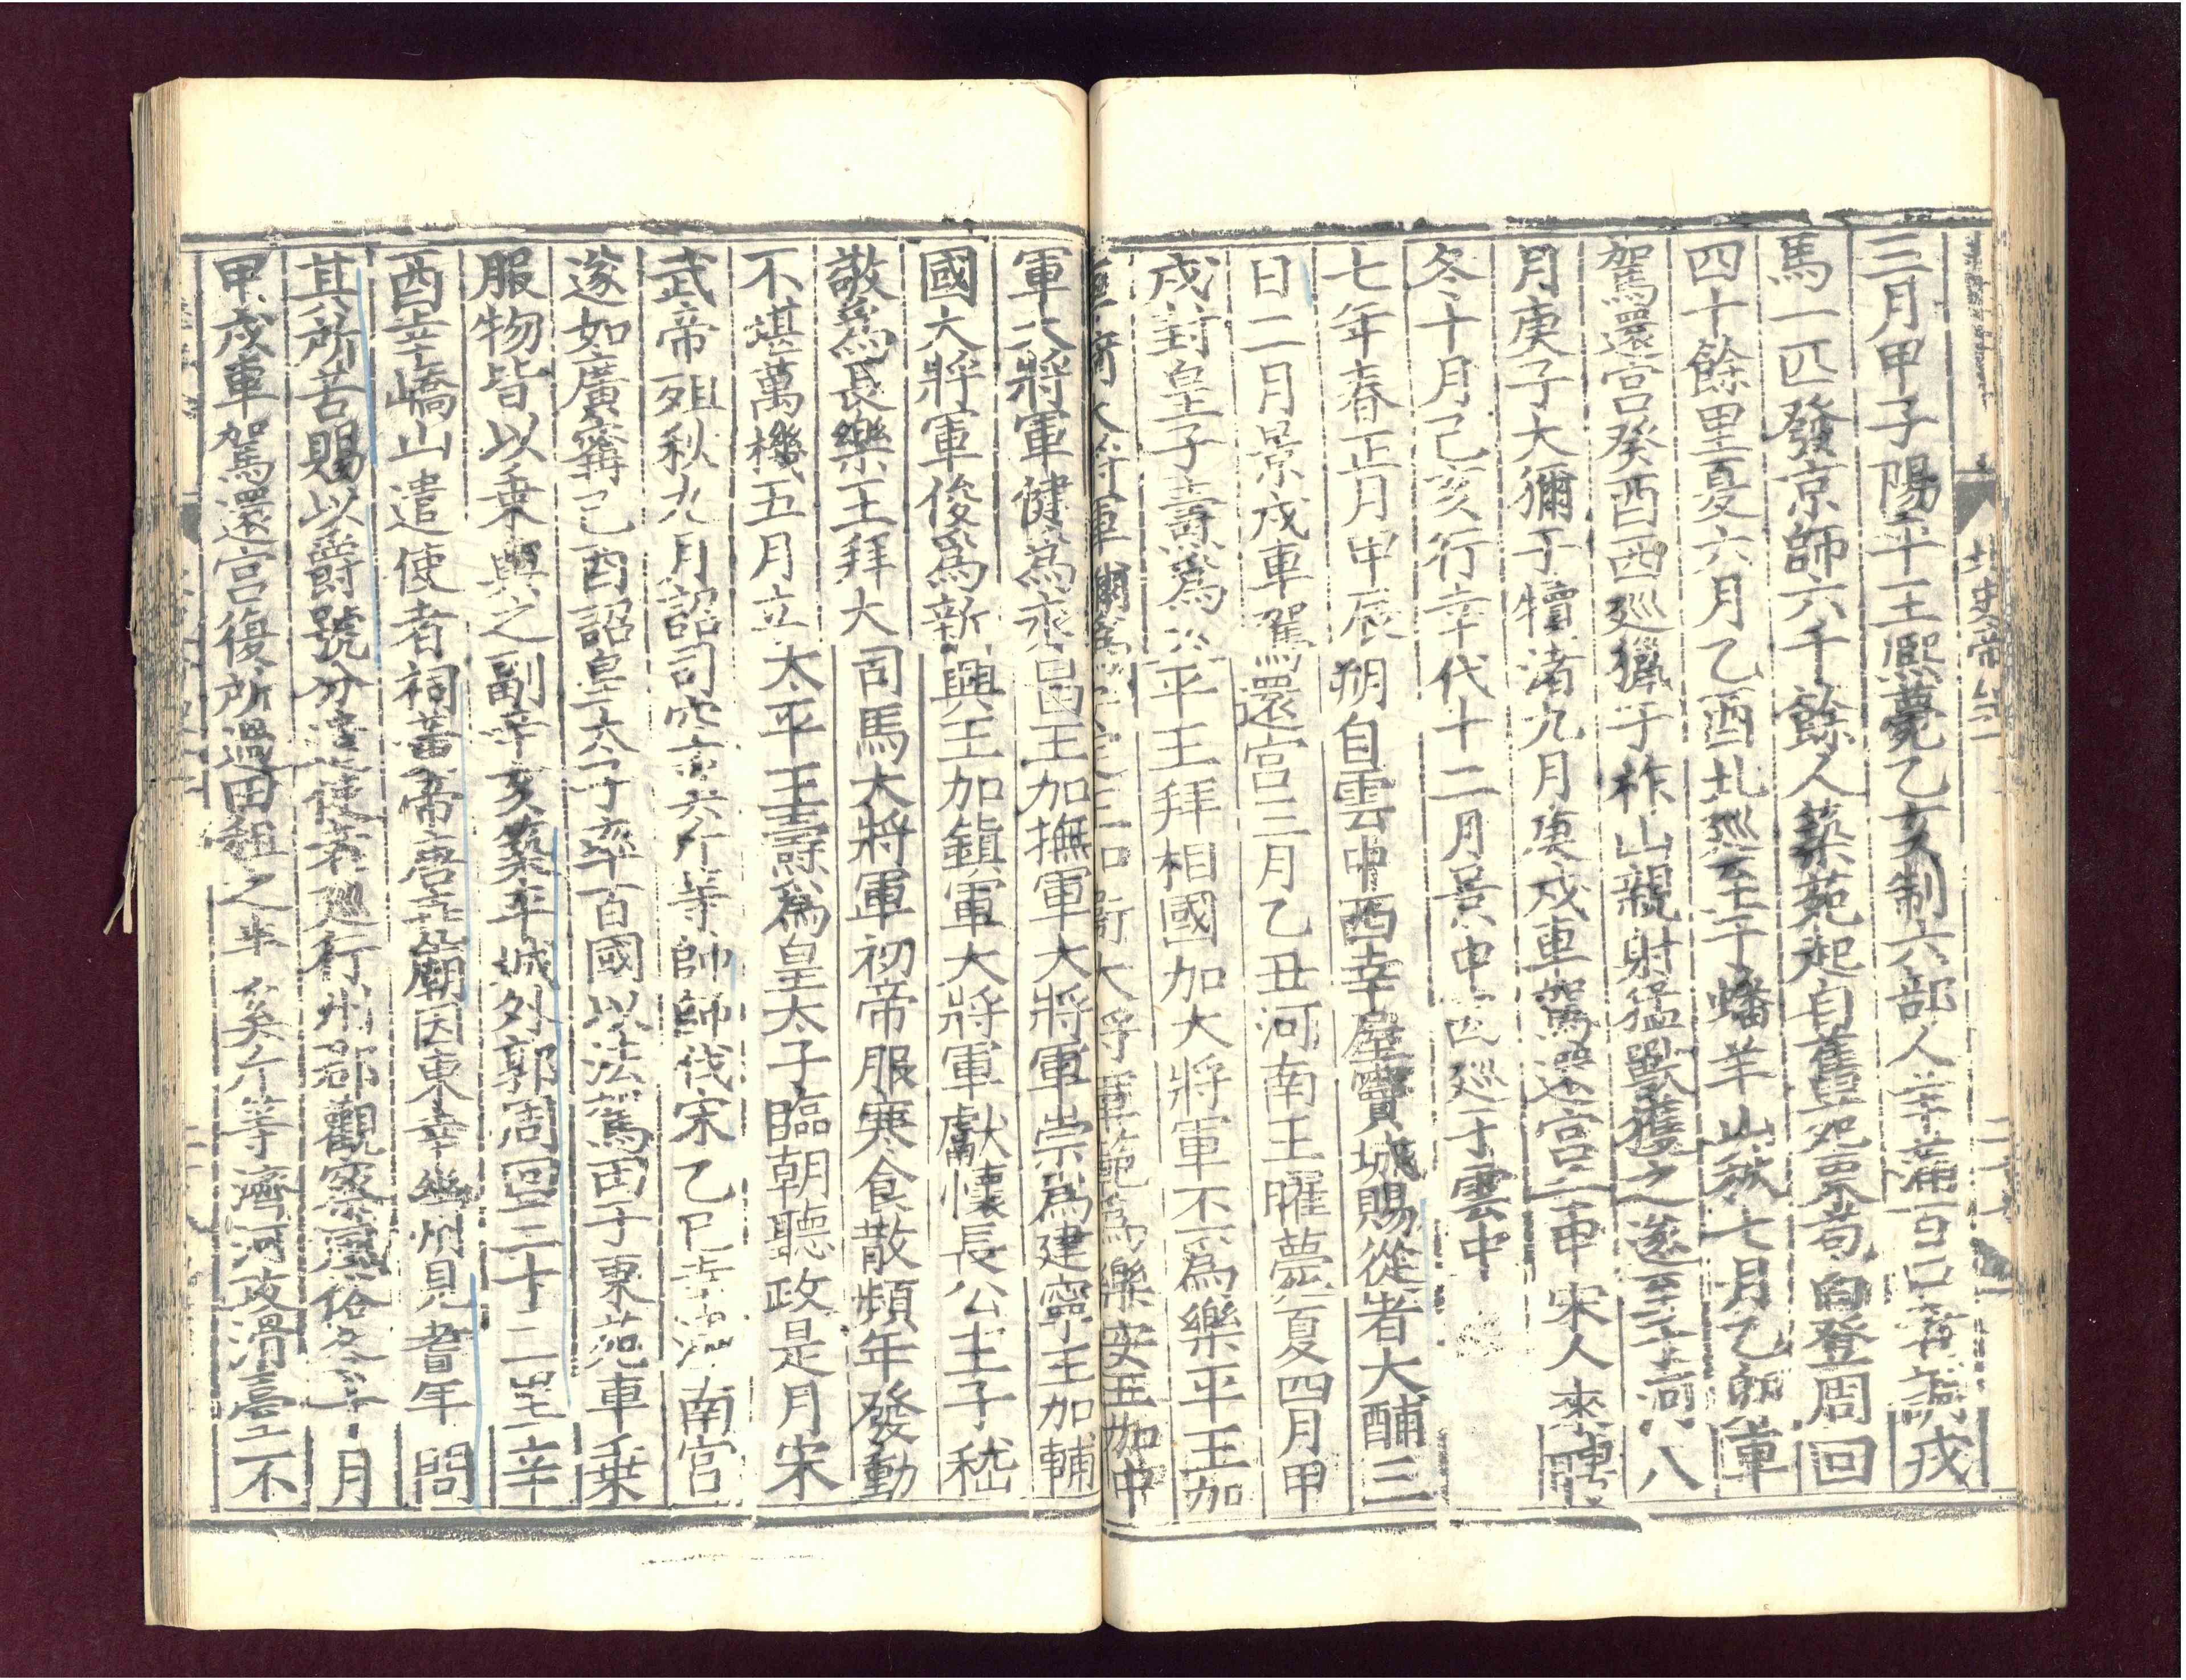 北史帝紀一
三月甲子陽平王熙薨乙亥制六部人羊滿百口者調戎
馬一匹發京師六千餘人築苑起自舊苑東苞白登周回
四十餘里夏六月乙酉北廵至于蟠羊山秋七月乙卯車
駕還宮癸酉西廵獵于柞山親射猛獸獲之遂至于河八
月庚子大獮于犢渚九月庚戌車駕還宮二申宋人來聘
冬十月己亥行幸代十二月景申西廵于雲中
七年春正月甲辰朔自雲中西幸屋竇城賜從者大酺三
日二月景戌車駕還宮三月乙丑河南王曜薨夏四月甲
戌封皇子燾爲㳟平王拜相國加大將軍不爲樂平王加
大將軍彌爲安定王加衞大將軍範爲樂安王加中
軍大將軍健爲永昌王加撫軍大將軍崇爲建寧王加輔
國大將軍俊爲新興王加鎭軍大將軍獻懷長公主子嵇
敬爲長樂王拜大司馬大將軍初帝服寒食散頻年發動
不堪萬機五月立太平王燾爲皇太子臨朝聽政是月宋
武帝殂秋九月詔司空奚斤等帥師伐宋乙巳幸灅南宮
遂如廣寗己酉詔皇太子率百國以法駕田于東苑車乘
服物皆以乗輿之副辛亥築平城外郭周回三十二里辛
酉幸嶠山遣使者祠黃帝唐堯廟因東幸幽州見耆年問
其所苦賜以爵號分遣使者廵行州郡觀察風俗冬十月
甲戌車駕還宮復所過田租之半奚斤等濟河攻滑臺不